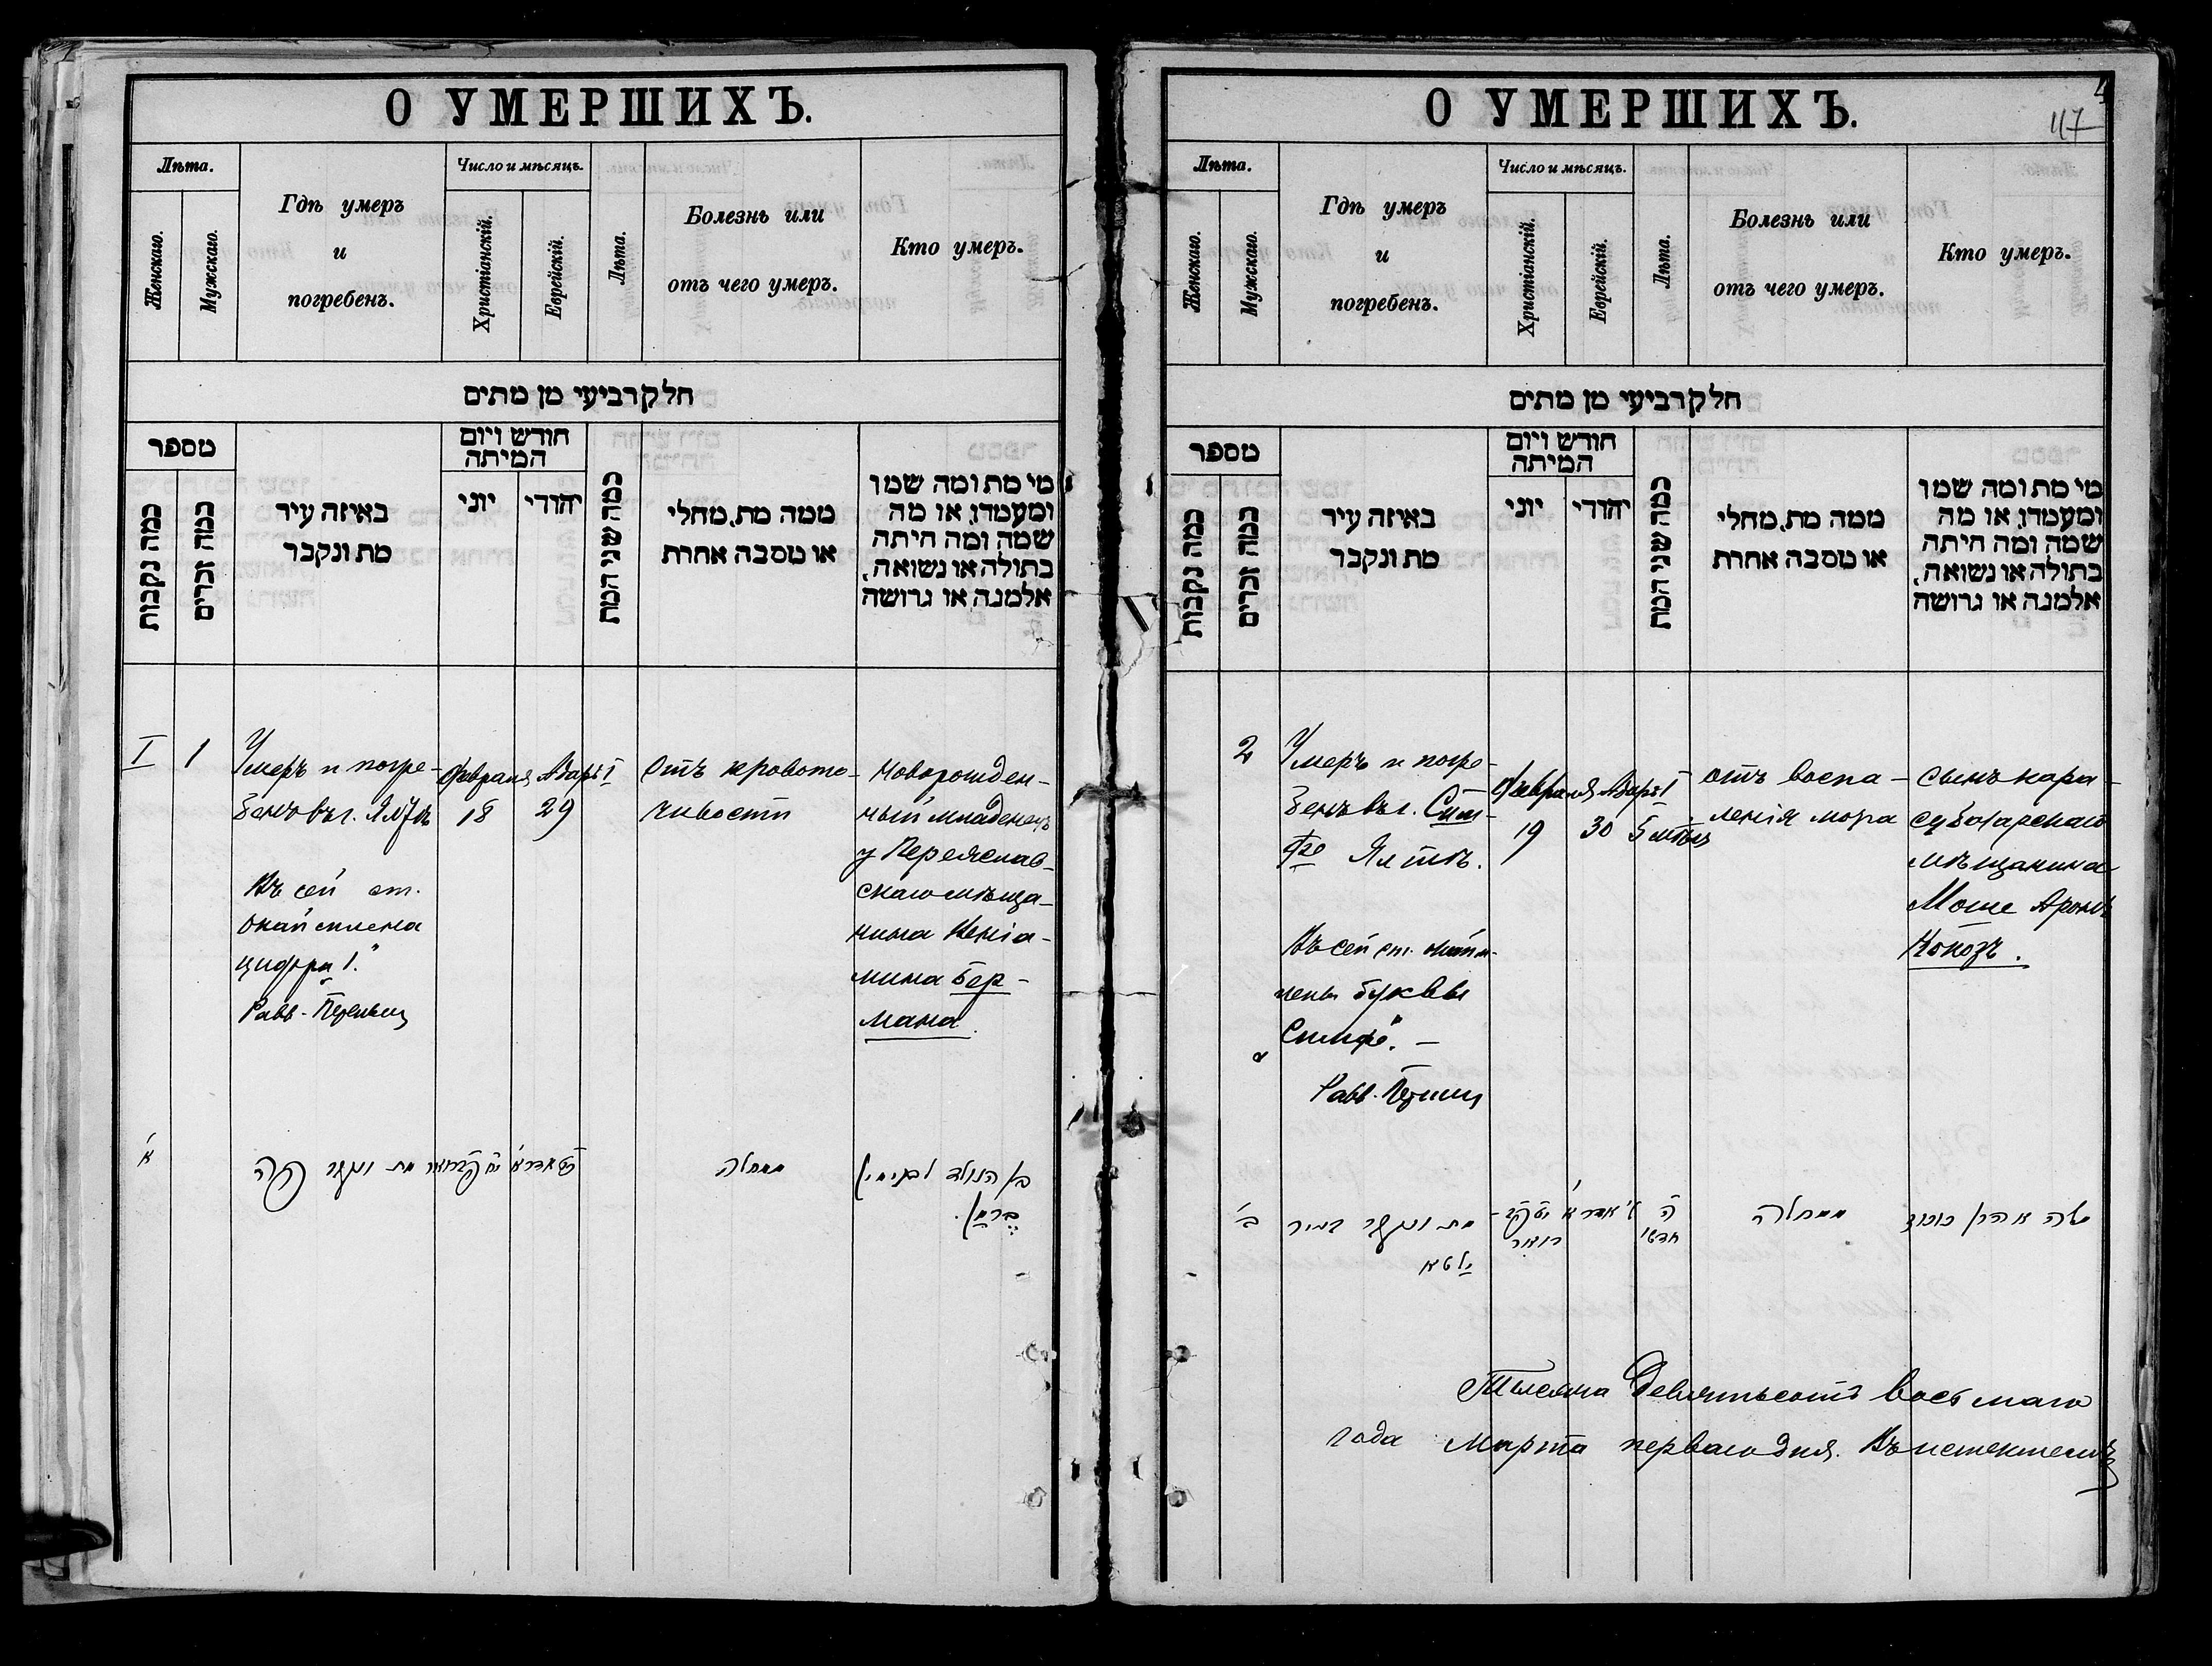 О УМЕРШИХЪ.
Лѣта.
Женскаго.
Мужскаго.
Гдѣ умеръ
и
погребенъ.
Число и мѣсяцъ.
Христіанскій.
Еврейскій.
Лѣта.
Болезнь или
отъ чего умеръ.
Кто умеръ.
חלק רביעי מן מתים
מספר
כמה נקבות
כמה זכרים
באיזה עיר
מת ונקבר
חודש ויום
המיתה
יוני
יהודי
כמה שני המת
ממה מת, מחלי
או מסבה אחרת
מי מת ומה שמו
ומעמדו, או מה
שמה ומה היתה
בתולה או נשואה,
אלמנה או גרושה
I
1
Умеръ и погре-
бенъ въ г. Ялтѣ
Въ сей ст.
цифра 1."
Равв.
Февраля
18
Адаръ I
29
Отъ кровото-
чивости
Новорожден-
ный младенецъ
у Переяслав-
скаго мѣща-
нина Веніа-
мина Бер-
мана.
א
מת
ממחלה
בן הנולד לבנימין
ברמן.
О УМЕРШИХЪ.
4
117
Лѣта.
Женскаго.
Мужскаго.
Гдѣ умеръ
и
погребенъ.
Число и мѣсяцъ.
Христіанскій.
Еврейскій.
Лѣта.
Болезнь или
отъ чего умеръ.
Кто умеръ.
חלק רביעי מן מתים
מספר
כמה נקבות
כמה זכרים
באיזה עיר
מת ונקבר
חודש ויום
המיתה
יוני
יהודי
כמה שני המת
ממה מת, מחלי
או מסבה אחרת
מי מת ומה שמו
ומעמדו, או מה
שמה ומה היתה
בתולה או נשואה,
אלמנה או גרושה
2
Умеръ и погре-
бенъ въ г. Сим-
фе Ялтѣ.
Въ сей ст.
лены буквы
„Симфе". —
Равв.
Февраля
19
Адаръ I
30
5 мѣс
отъ воспа-
ленія
сынъ кара-
субазарскаго
мѣщанина
Моше Аронъ
Копозъ.
ב
מת ונקבר בעיר
ילטא
ה
חדשי
ממחלה
משה אהרן
Тысяча девятьсотъ восьмаго
года Марта перваго дня. Въ истекшемъ